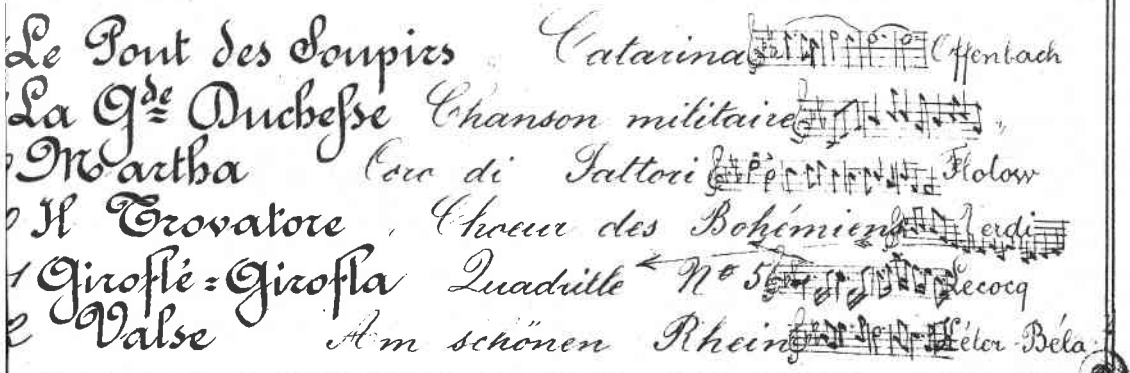 Le Pont des Soupirs Catarina Offenbach
La Gde Duchesse Chanson militaire "
Martha Coro di Fattori Flotow
Il Trovatore Choeur des Bohémiens Verdi
1 Giroflé-Girofla Quadrille No 5 Lecocq
2 Valse Am schönen Rhein Kéler-Béla